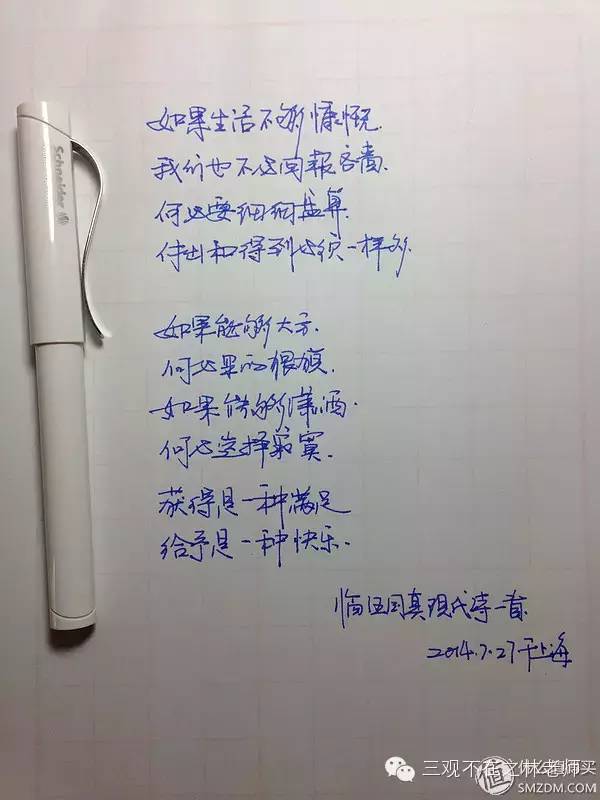 如果生活不够慷慨.
我们也不必回报吝啬.
何必要细细盘算.
付出和得到必须一样多.
如果能够大方.
何必显得猥琐.
如果能够潇洒.
何必选择寂寞.
获得是一种满足
给予是一种快乐.
临汪国真现代诗一首.
2014.7.27于上海
Schneider
三观不在之林老师
值 什么值得买
SMZDM.COM